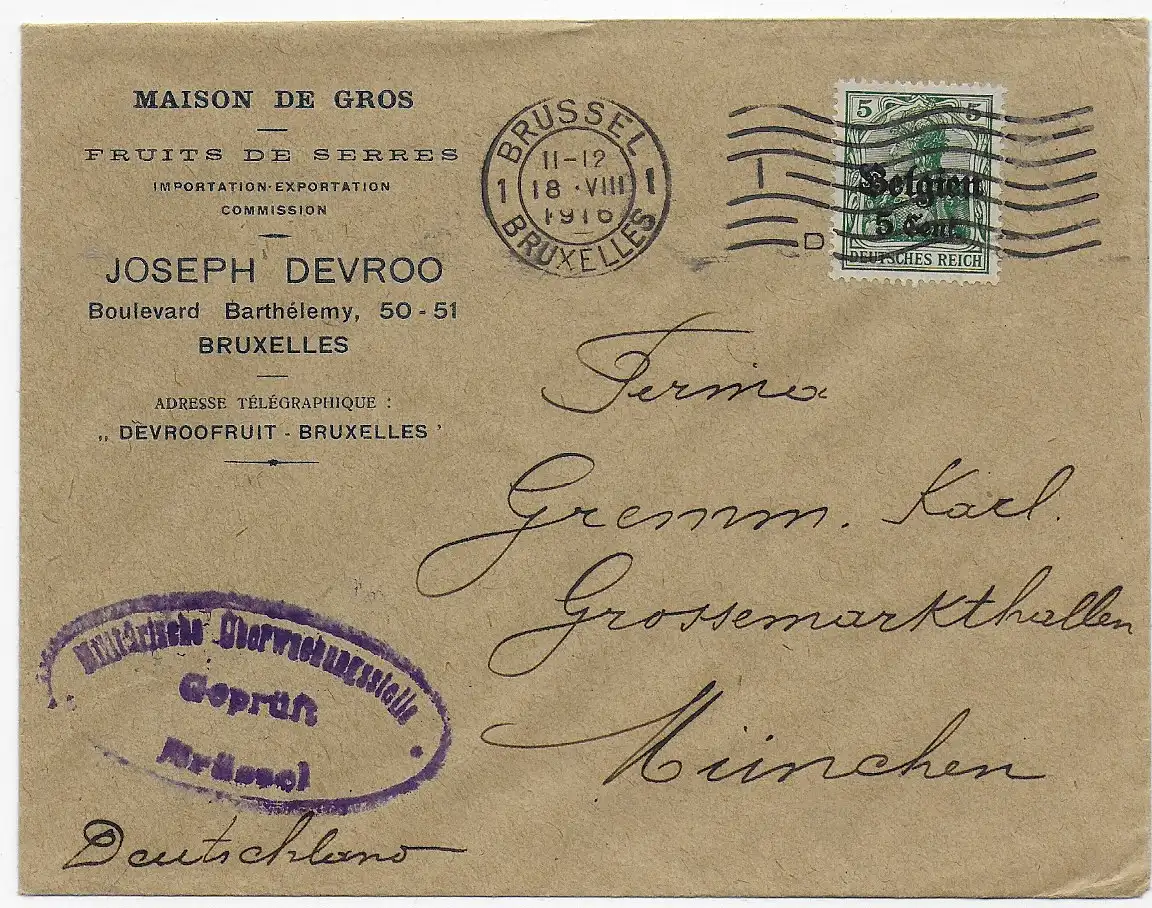 MAISON DE GROS
FRUITS DE SERRES
IMPORTATION-EXPORTATION
COMMISSION
JOSEPH DEVROO
Boulevard Barthélemy, 50-51
BRUXELLES
ADRESSE TÉLÉGRAPHIQUE :
„ DEVROOFRUIT - BRUXELLES '
BRUSSEL
11-12
1 18 ·VIII 1
1916
BRUXELLES
D
5 5
Belgien
5 Cent.
DEUTSCHES REICH
Firma
Gremm. Karl.
Grossemarkthallen
München
Militärische Überwachungsstelle
Geprüft
Brüssel
Deutschland